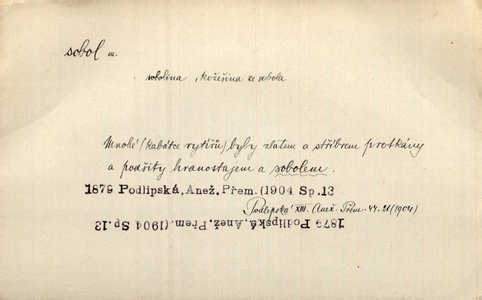 sobol m.
sobolina, kožešina ze sobola
Mnohé (kabátce rytířů) byly zlatem a stříbrem protkány
a podšity hranostajem a sobolem.
1879 Podlipská, Anež. Přem. (1904 Sp.13
Podlipská XIII. Anež. Přem. 44.21 (1904)
1879 Podlipská, Anež. Přem. (1904 Sp.13